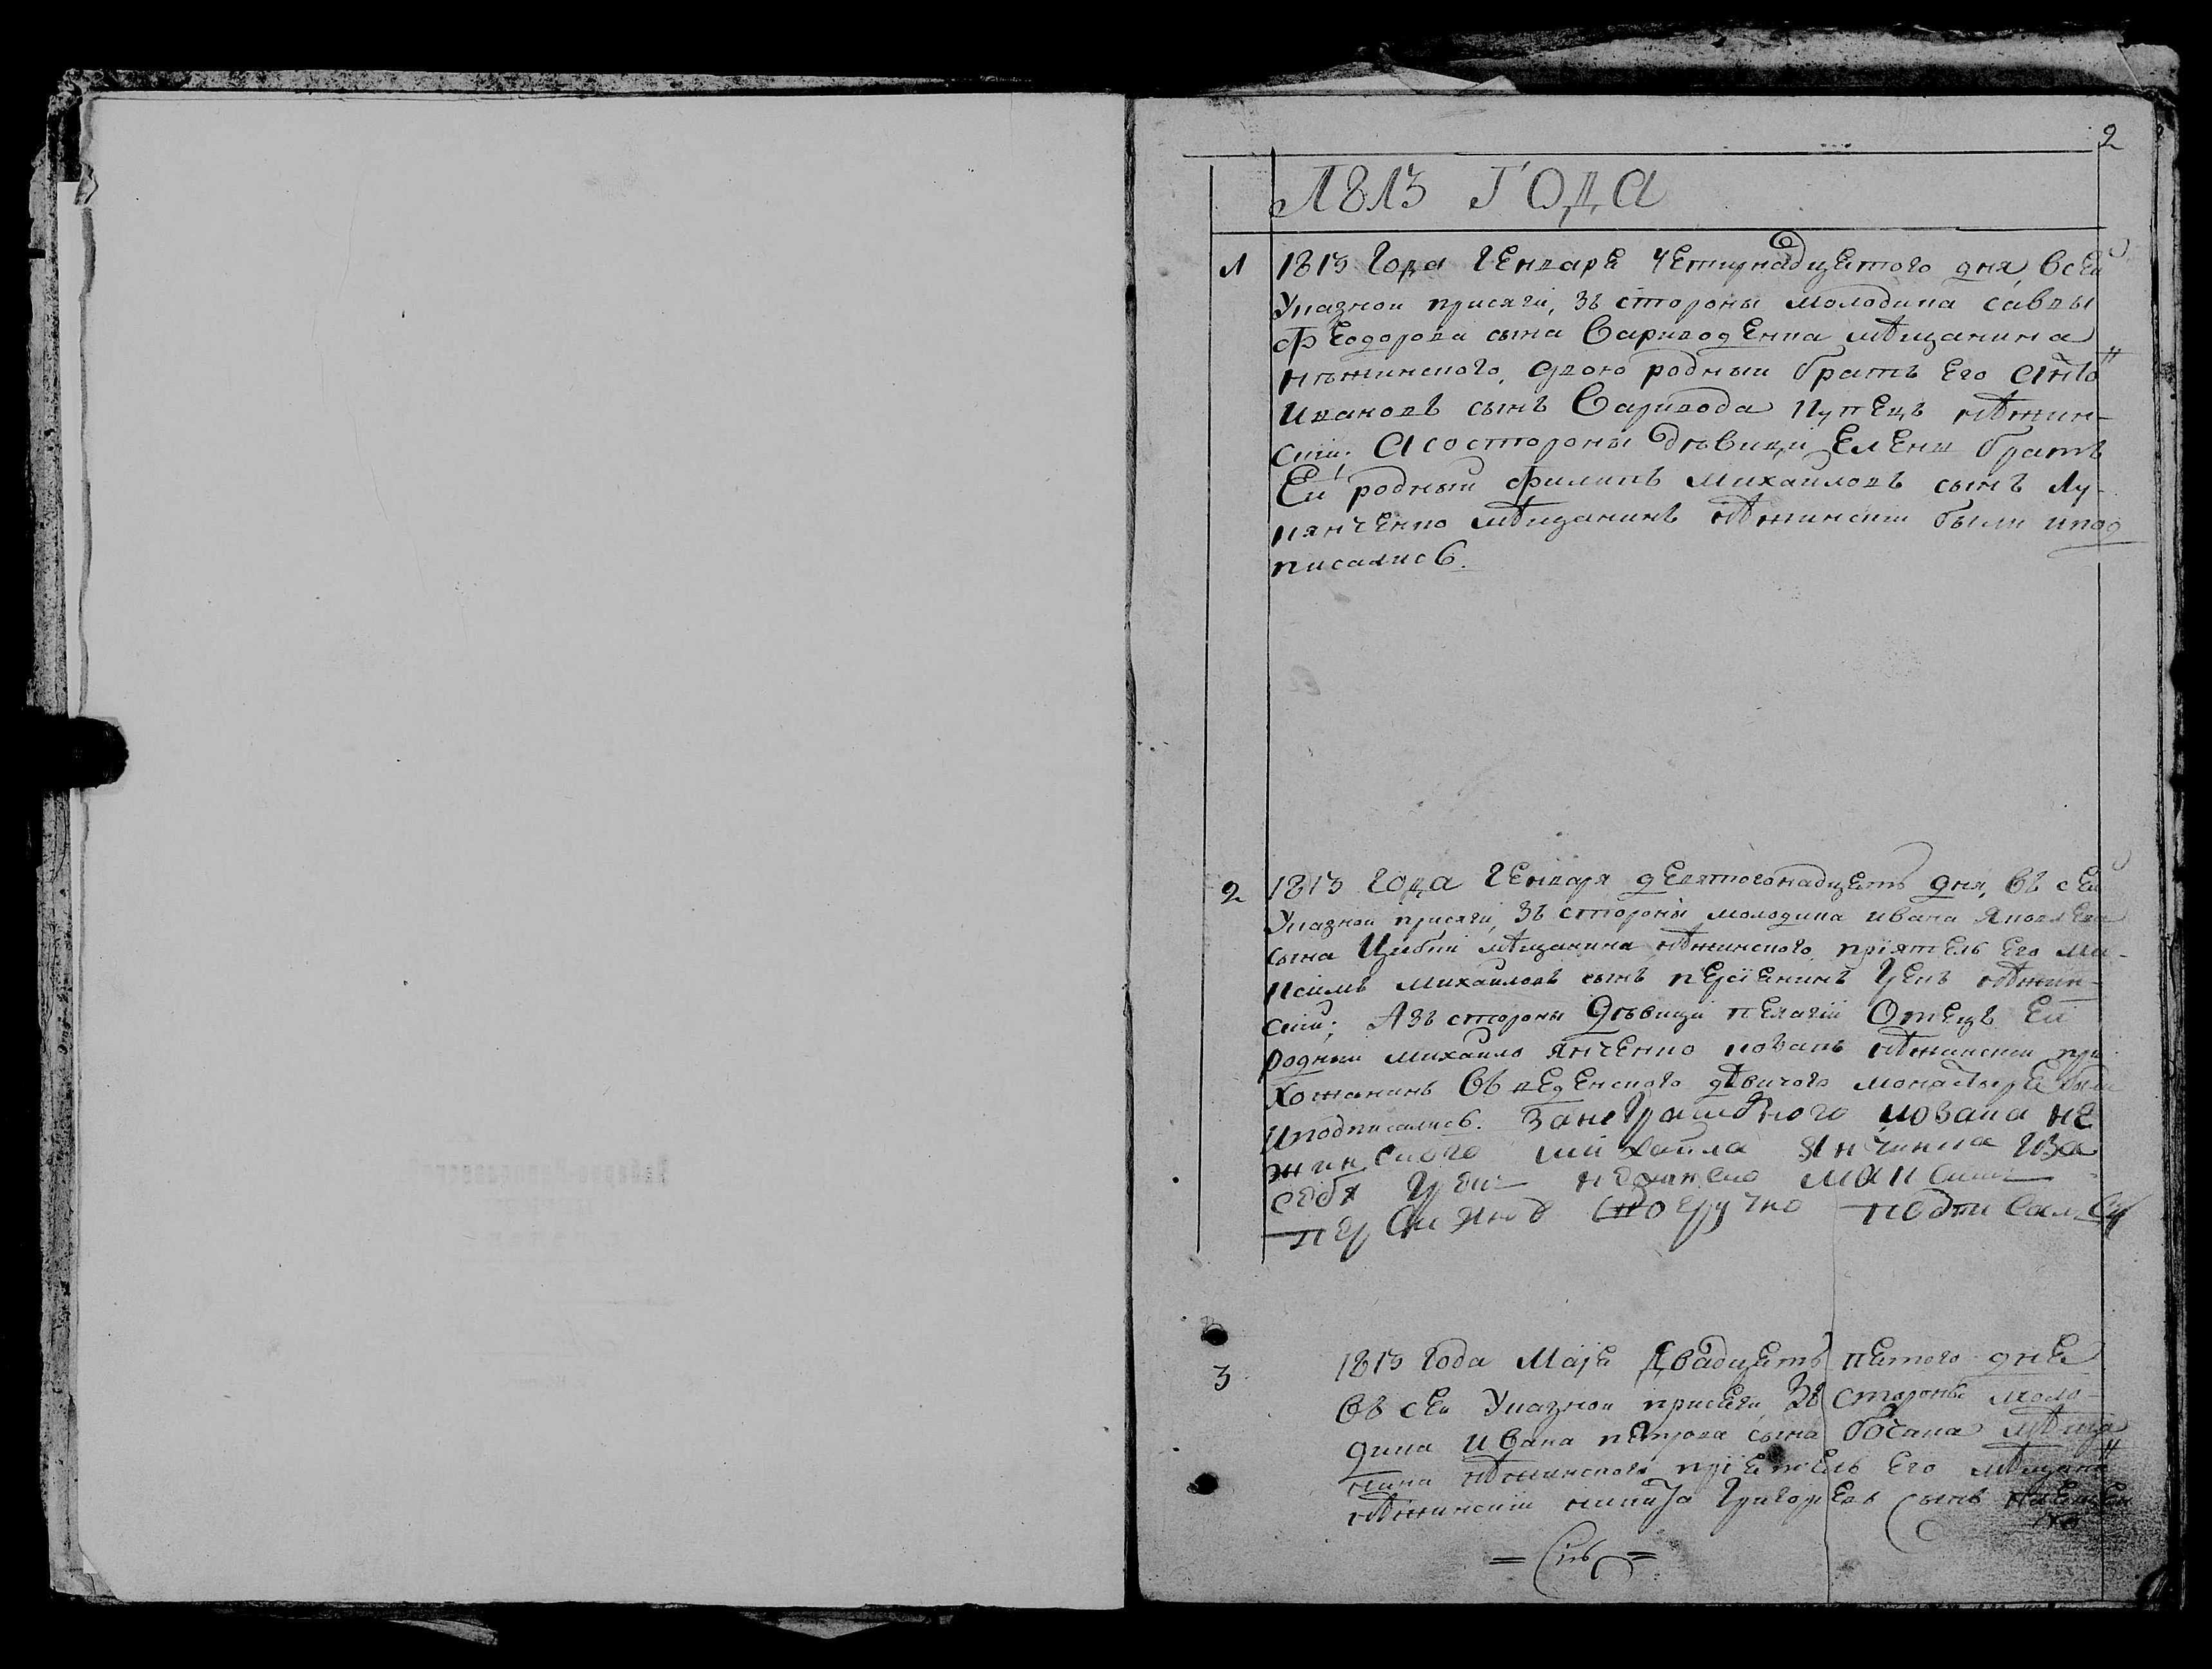 2
1813 ГОДА
1 1813 Года Генваре четирнадцетого дня, Всей
Указной присяги, зъ стороны молодика Савы
Феодорова сына Вариводенка мѣщанина
нѣжинского, двою родный братъ Его Анто
Ивановъ сынъВаривода Купецъ нѣжин-
скій. А со стороны Дѣвици Елены братъ
Ей родный Филипъ Михайловъ сынъ Лу-
кянченко мѣщанинъ нѣжинскій были ипод
писались.
2 1813 года Генваря девятогонадцеть дня, Въ сей
Указной присяги, зъ стороны молодика ивана Яковлева
сына мѣщанина нѣжинского, пріятель Его Ма-
ксимъ Михайловъ сынъ нѣжин-
скій; А зъ стороны Дѣвици Пелагіи Отецъ Ей
родный Михайло Янченко коваль нѣжинскій при
хожанинъ Введенского дѣвичого монастыря были
иподписались. За неграмотного коваля не
жинского михайла Янчинка иза
себя
подписался
3 1813 Года Маіе Двадцеть петого дне
Въ сей Указной присеги, Зъ стороны моло-
дика Ивана Петрова сына мѣща
нина нѣжинского пріетель Его мѣщани
нѣжинскій Григоріевъ Сынъ